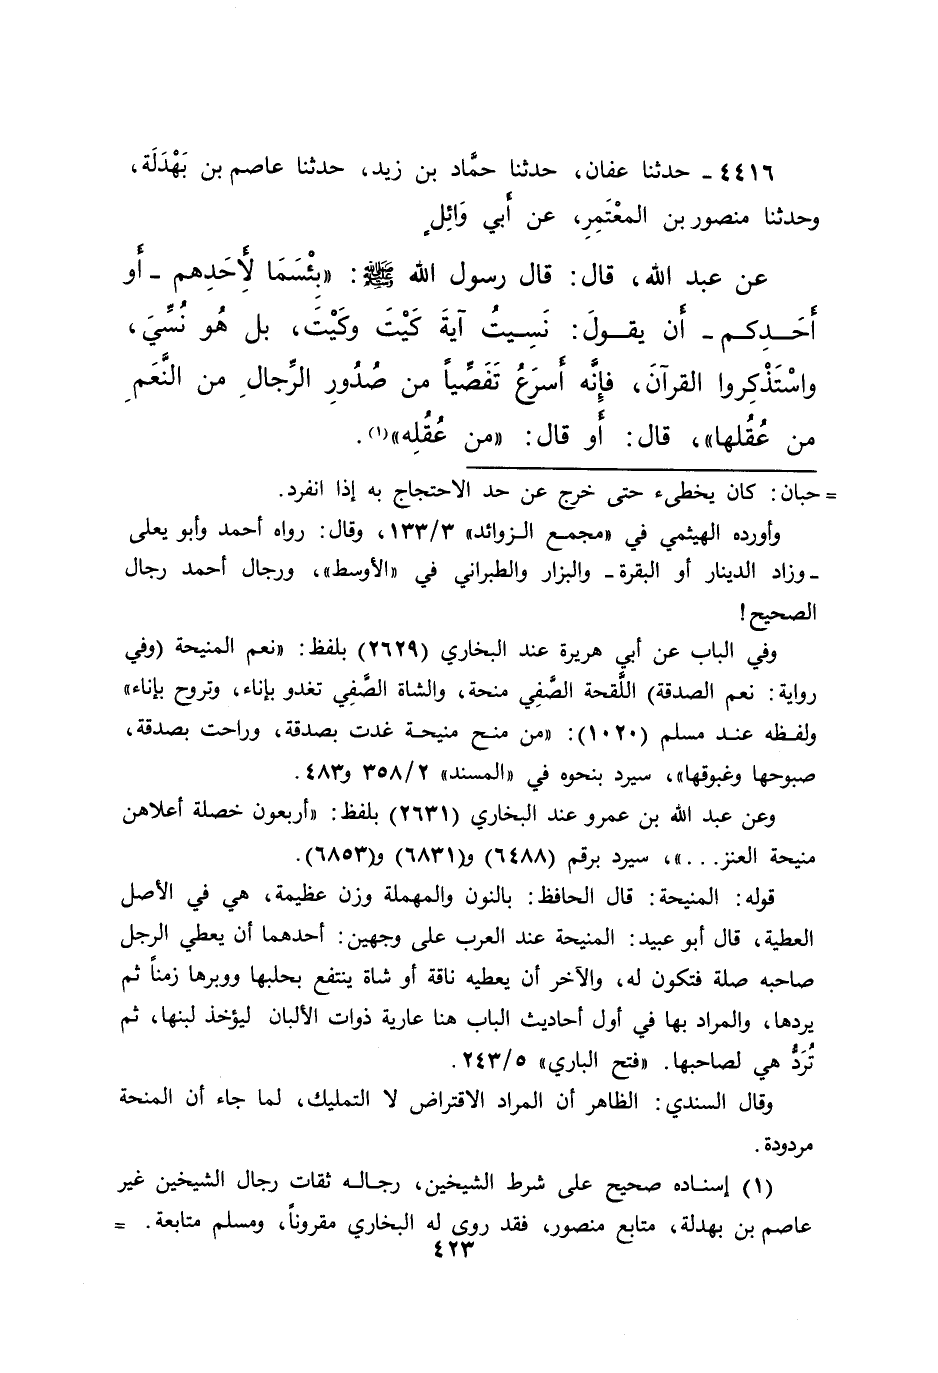 ٤٤١٦ - حدثنا عفان، حدثنا حمَّاد بن زيد، حدثنا عاصم بن بَهْدَلَة،
وحدثنا منصور بن المعْتَمِرِ، عن أَبي وَائِلٍ
عن عبد الله، قال: قال رسول الله ﷺ: «بِئْسَمَا لِأَحَدِهم - أَو
أَحَـدِكـم - أَن يقـولَ: نَسِيتُ آيةَ كَيْتَ وكَيْتَ، بل هُو نُسِّيَ،
واسْتَذْكِروا القرآنَ، فإِنَّه أَسرَعُ تَفَصِّياً من صُدُورِ الرِّجالِ من النَّعَمِ
من عُقُلها»، قال: أَو قال: «من عُقُلِه»(١).
= حبان: كان يخطىء حتى خرج عن حد الاحتجاج به إذا انفرد.
وأورده الهيثمي في «مجمع الزوائد» ١٣٣/٣، وقال: رواه أحمد وأبو يعلى
- وزاد الدينار أو البقرة - والبزار والطبراني في «الأوسط»، ورجال أحمد رجال
الصحيح!
وفي الباب عن أبي هريرة عند البخاري (٢٦٢٩) بلفظ: «نعم المنيحة (وفي
رواية: نعم الصدقة) اللَّقحة الصَّفِي منحة، والشاة الصَّفِي تغدو بإناء، وتروح بإناء»
ولفظه عند مسلم (١٠٢٠): «من منح منيحة غدت بصدقة، وراحت بصدقة،
صبوحها وغبوقها»، سيرد بنحوه في «المسند» ٣٥٨/٢ و٤٨٣.
وعن عبد الله بن عمرو عند البخاري (٢٦٣١) بلفظ: «أربعون خصلة أعلاهن
منيحة العنز...»، سيرد برقم (٦٤٨٨) و(٦٨٣١) و(٦٨٥٣).
قوله: المنيحة: قال الحافظ: بالنون والمهملة وزن عظيمة، هي في الأصل
العطية، قال أبو عبيد: المنيحة عند العرب على وجهين: أحدهما أن يعطي الرجل
صاحبه صلة فتكون له، والآخر أن يعطيه ناقة أو شاة ينتفع بحلبها ووبرها زمناً ثم
يردها، والمراد بها في أول أحاديث الباب هنا عارية ذوات الألبان ليؤخذ لبنها، ثم
تُرَدُّ هي لصاحبها. «فتح الباري» ٢٤٣/٥.
وقال السندي: الظاهر أن المراد الاقتراض لا التمليك، لما جاء أن المنحة
مردودة.
(١) إسناده صحيح على شرط الشيخين، رجاله ثقات رجال الشيخين غير
عاصم بن بهدلة، متابع منصور، فقد روى له البخاري مقروناً، ومسلم متابعة. =
٤٢٣